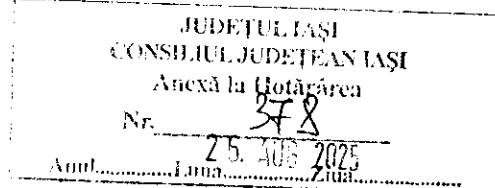 JUDEŢUL IAŞI
CONSILIUL JUDEŢEAN IAŞI
Anexă la Hotărârea
Nr. 378
25. AUG 2025
Anul............Luna............Ziua............